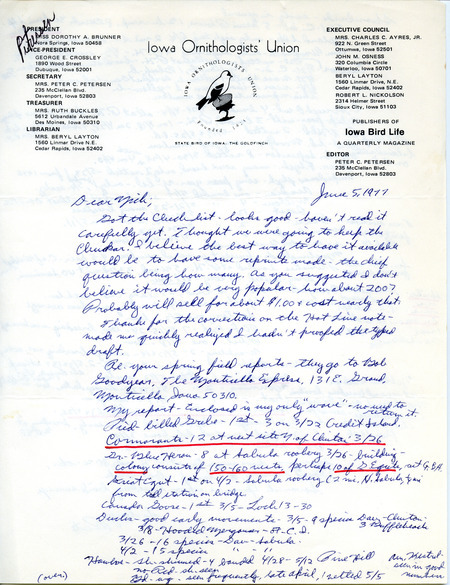 Petersen
PRESIDENT
MISS DOROTHY A. BRUNNER
Nora Springs, Iowa 50458
VICE-PRESIDENT
GEORGE E. CROSSLEY
1890 Wood Street
Dubuque, Iowa 52001
SECRETARY
MRS. PETER C. PETERSEN
235 McClellan Blvd.
Davenport, Iowa 52803
TREASURER
MRS. RUTH BUCKLES
5612 Urbandale Avenue
Des Moines, Iowa 50310
LIBRARIAN
MRS. BERYL LAYTON
1560 Linmar Drive N.E.
Cedar Rapids, Iowa 52402
Iowa Ornithologists' Union
IOWA ORNITHOLOGISTS' UNION
Founded 1923
STATE BIRD OF IOWA, THE GOLDFINCH
EXECUTIVE COUNCIL
MRS. CHARLES C. AYRES, JR.
922 N. Green Street
Ottumwa, Iowa 52501
JOHN M. OSNESS
320 Columbia Circle
Waterloo, Iowa 50701
BERYL LAYTON
1560 Linmar Drive, N.E.
Cedar Rapids, Iowa 52402
ROBERT L. NICKOLSON
2314 Helmer Street
Sioux City, Iowa 51103
PUBLISHERS OF
Iowa Bird Life
A QUARTERLY MAGAZINE
EDITOR
PETER C. PETERSEN
235 McClellan Blvd.
Davenport, Iowa 52803
June 5, 1977
Dear Nick,
Got the Check list - looks good - haven't read it
carefully yet. I thought we were going to keep the
Chuckar. I believe the best way to have it available
would be to have some reprints made - the chief
question being how many. As you suggested I don't
believe it would be very popular - how about 200?
Probably will sell for about $1.00 + cost nearly that.
Thanks for the correction on the Hot Line note -
made me quickly realized I hadn't proofed the typed
draft.
Re. your spring field reports - they go to Bob
Goodyear, The Monticello Express, 131 E. Grand,
Monticello Iowa 50310.
My report - Enclosed is my only "wave" - no need to
return it.
Pied-billed Grebe - 1st - 3 on 3/22 Credit Island.
Cormorants - 12 at nest site N. of Clinton 3/26
Gr. Blue Heron - 8 at Sabula rookery 3/26 - building -
colony consists of 150-160 nests, perhaps 10 of G Egrets, rest G.B.H.
Great Egret - 1st on 4/2 - Sabula rookery (2 mi. N. Sabula, seen
from rail station on bridge.
Canada Goose - 1st 3/5 - Loch 13 - 30
Ducks - good early movements - 3/5 - 9 species Dav - Clinton
3/8 - Hooded Merganser - A.C.I. 3 Buffleheads
3/26 - 16 species - Dav - Sabula
4/2 - 15 species " - "
Hawks - sh-shinned - 4 banded 4/28 - 5/12 Pine Hill
no Red-sh. seen
seen in good
(over)